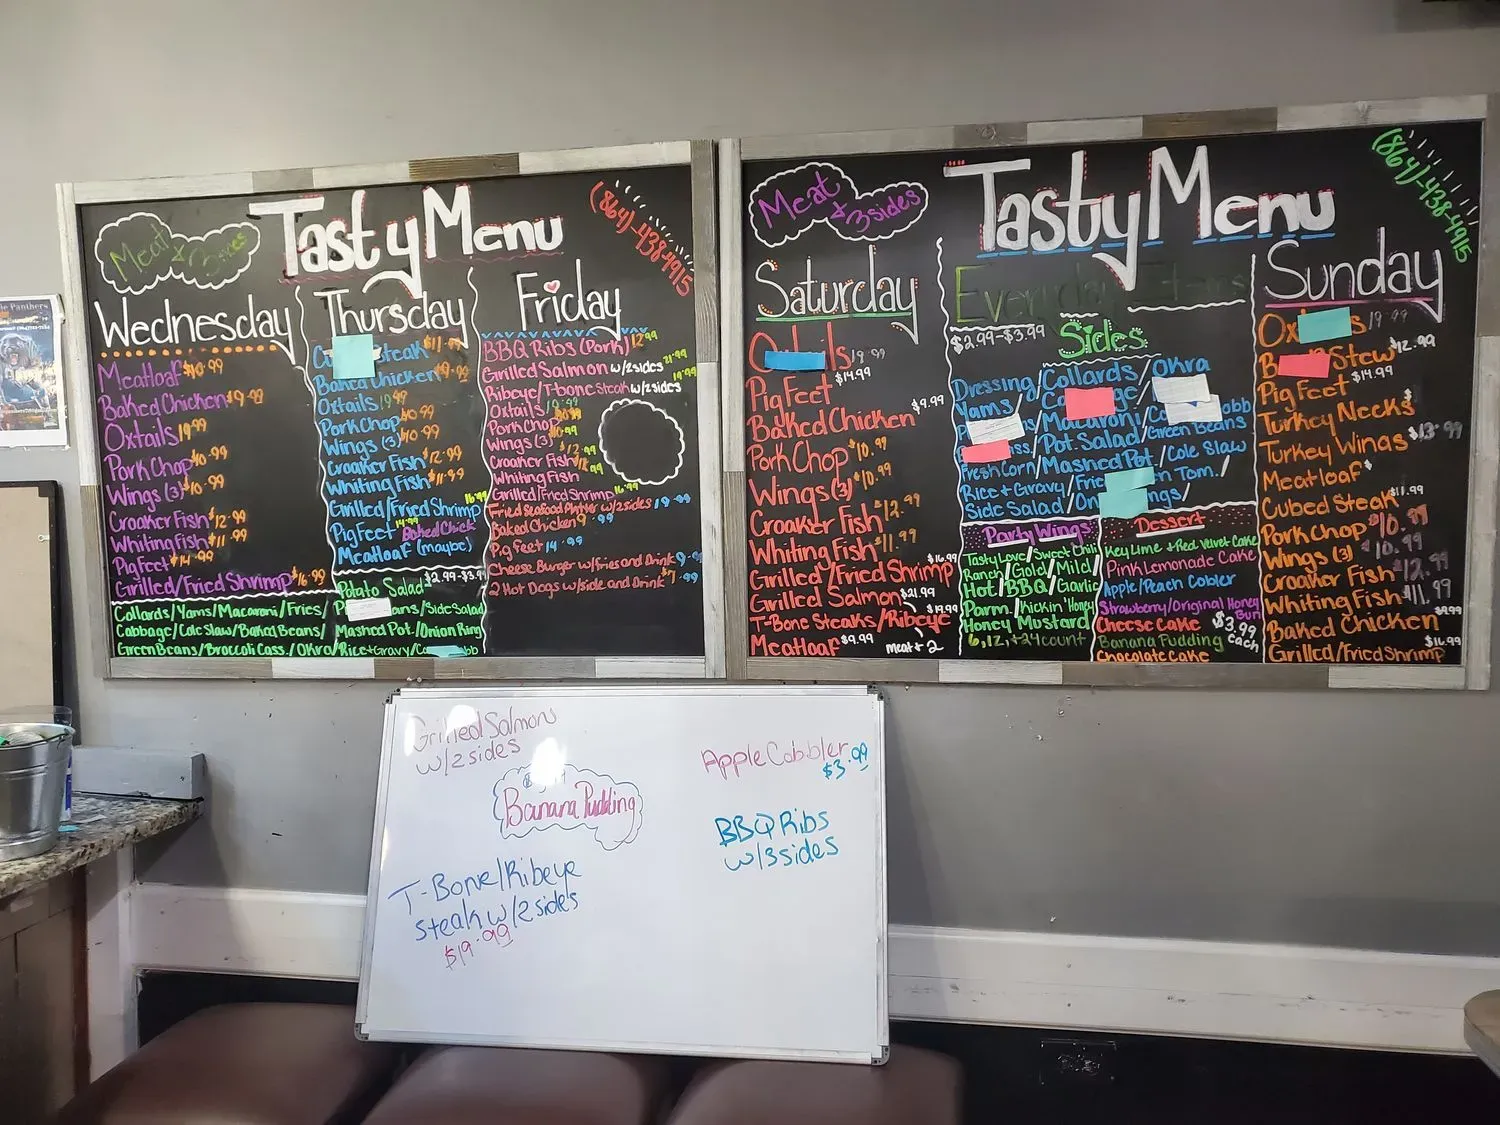 Meat & 3sides
Tasty Menu
(864)-438-4915
Wednesday
Meatloaf $10.99
Baked Chicken $9.99
Oxtails 19.99
Pork Chop $10.99
Wings (3) $10.99
Croaker Fish $12.99
Whiting Fish $11.99
Pig Feet $14.99
Grilled/Fried Shrimp $16.99
Collards/Yams/Macaroni/Fries/
Cabbage/Cole Slaw/Baked Beans/
Green Beans/Broccoli Cass./Okra/
Thursday
Steak $11.99
Baked Chicken 9.99
Oxtails 19.99
Pork Chop 10.99
Wings (3) $10.99
Croaker Fish $12.99
Whiting Fish $11.99
Grilled/Fried Shrimp 16.99
Pig Feet 14.99 Baked Chick
Meatloaf (maybe)
Potato Salad $2.99-$3.99
/Side Salad
Mashed Pot./Onion Ring
Rice+Gravy/
Friday
BBQ Ribs (Pork) 12.99
Grilled Salmon w/2sides 21.99
Ribeye/T-bone Steak w/2sides 19.99
Oxtails 19.99
Pork Chop 10.99
Wings (3) $10.99
Croaker Fish $12.99
Whiting Fish 11.99
Grilled/Fried Shrimp 16.99
Fried Seafood Platter w/2sides 19.99
Baked Chicken 9.99
Pig feet 14.99
Cheese Burger w/fries and Drink 9.99
2 Hot Dogs w/side and Drink $7.99
Meat & 3sides
Tasty Menu
(864)-438-4915
Saturday
19.99
Pig Feet $14.99
Baked Chicken $9.99
Pork Chop $10.99
Wings (3) $10.99
Croaker Fish $12.99
Whiting Fish $11.99
Grilled/Fried Shrimp $16.99
Grilled Salmon $21.99
T-Bone Steaks/Ribeye $19.99
Meatloaf $9.99 meat + 2
Everyday Items
$2.99-$3.99
Sides:
Dressing/Collards/Okra
Yams/
Macaroni/
Pot Salad/Green Beans
Fresh Corn/Mashed Pot/Cole Slaw
Rice + Gravy/ Tom./
Side Salad/
Party Wings
Tasty Love/Sweet Chili
Ranch/Gold/Mild/
Hot/BBQ/Garlic
Parm./Kickin' Honey
Honey Mustard/
6,12,+24 count
Dessert
Key Lime + Red Velvet Cake
Pink Lemonade Cake
Apple/Peach Cobler
Strawberry/Original Honey Bun
Cheese Cake $3.99 each
Banana Pudding
Chocolate Cake
Sunday
19.99
Stew $12.99
Pig Feet $14.99
Turkey Necks
Turkey Wings $13.99
Meatloaf $
Cubed Steak $11.99
Pork Chop $10.99
Wings (3) $10.99
Croaker Fish $12.99
Whiting Fish $11.99
Baked Chicken $9.99
Grilled/Fried Shrimp $16.99
Grilled Salmon
w/2sides
Banana Pudding
T-Bone/Ribeye
Steak w/2 side's
$19.99
Apple Cobbler
$3.99
BBQ Ribs
w/3sides